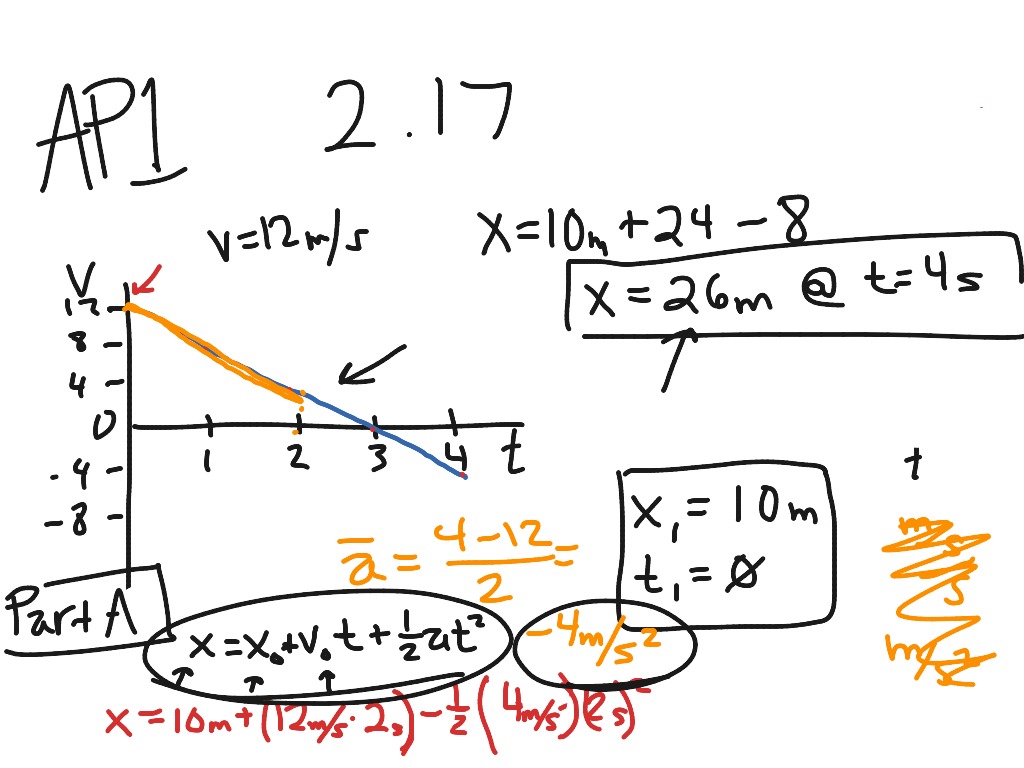 AP1 2.17
v=12m/s
x=10m+24-8
x=26m @ t=4s
V
12
8
4
0
-4
-8
1 2 3 4 t
x₁=10m
t₁=∅
t
ā = 4-12/2 = -4m/s²
Part A
x=x₀+v₀t+½at²
x=10m+(12m/s·2s)-½(4m/s²)(2s)²